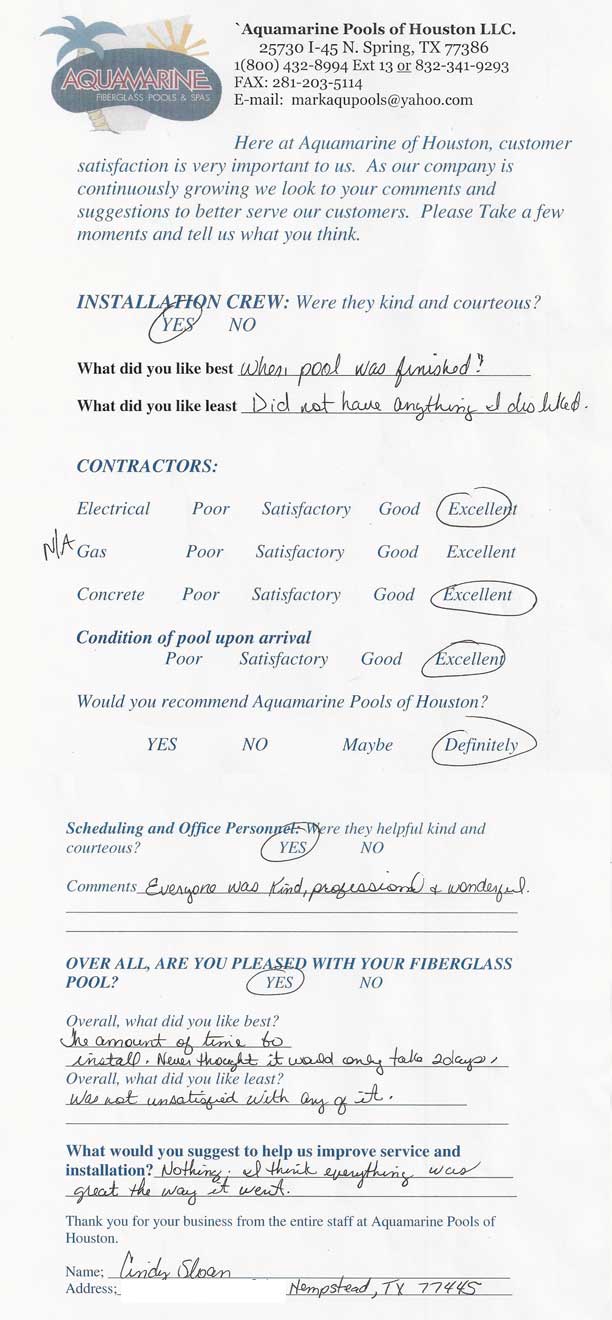 AQUAMARINE
FIBERGLASS POOLS & SPAS
`Aquamarine Pools of Houston LLC.
25730 I-45 N. Spring, TX 77386
1(800) 432-8994 Ext 13 or 832-341-9293
FAX: 281-203-5114
E-mail: markaqupools@yahoo.com
Here at Aquamarine of Houston, customer
satisfaction is very important to us. As our company is
continuously growing we look to your comments and
suggestions to better serve our customers. Please Take a few
moments and tell us what you think.
INSTALLATION CREW: Were they kind and courteous?
YES NO
What did you like best When pool was finished!
What did you like least Did not have anything I disliked.
CONTRACTORS:
Electrical Poor Satisfactory Good Excellent
N/A Gas Poor Satisfactory Good Excellent
Concrete Poor Satisfactory Good Excellent
Condition of pool upon arrival
Poor Satisfactory Good Excellent
Would you recommend Aquamarine Pools of Houston?
YES NO Maybe Definitely
Scheduling and Office Personnel: Were they helpful kind and
courteous? YES NO
Comments Everyone was Kind, professional & wonderful.
OVER ALL, ARE YOU PLEASED WITH YOUR FIBERGLASS
POOL? YES NO
Overall, what did you like best?
The amount of time to
install. Never thought it would only take 2days.
Overall, what did you like least?
Was not unsatisfied with any of it.
What would you suggest to help us improve service and
installation? Nothing. I think everything was
great the way it went.
Thank you for your business from the entire staff at Aquamarine Pools of
Houston.
Name; Cindy Sloan
Address; Hempstead, TX 77445